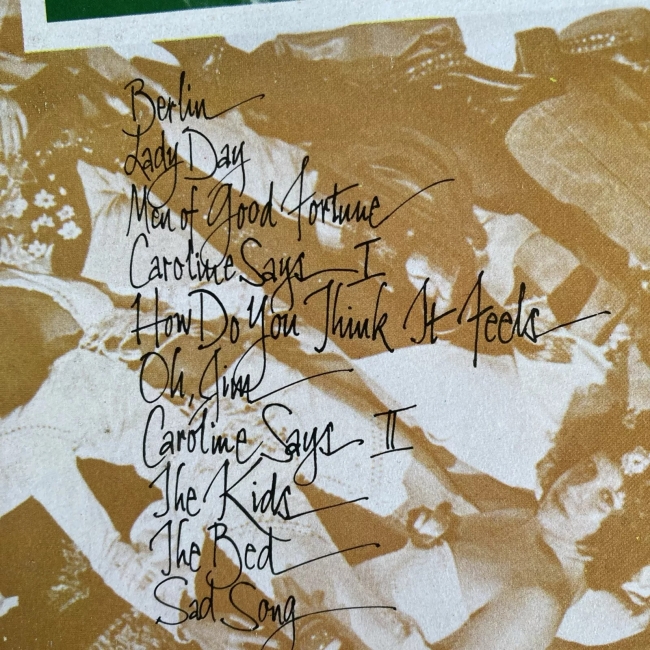 Berlin
Lady Day
Men of Good Fortune
Caroline Says I
How Do You Think It Feels
Oh, Jim
Caroline Says II
The Kids
The Bed
Sad Song